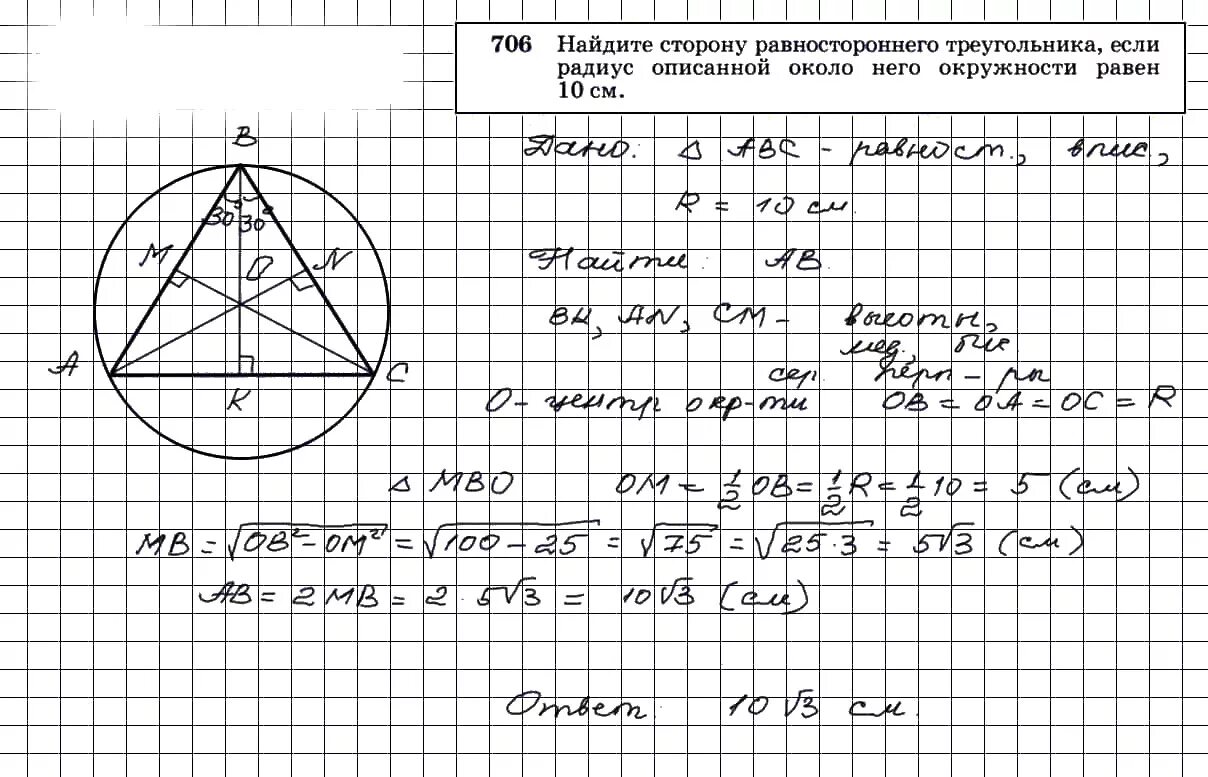 706 Найдите сторону равностороннего треугольника, если
радиус описанной около него окружности равен
10 см.
B
30° 30°
M O N
A C
K
Дано: △ ABC - равност., впис.,
R = 10 см.
Найти: AB.
BK, AN, CM - высоты,
мед., бис.
сер. перп - ры
O - центр окр-ти OB = OA = OC = R
△ MBO OM = 1/2 OB = 1/2 R = 1/2 10 = 5 (см)
MB = √(OB² - OM²) = √(100 - 25) = √75 = √(25·3) = 5√3 (см)
AB = 2 MB = 2 · 5√3 = 10√3 (см)
Ответ: 10√3 см.